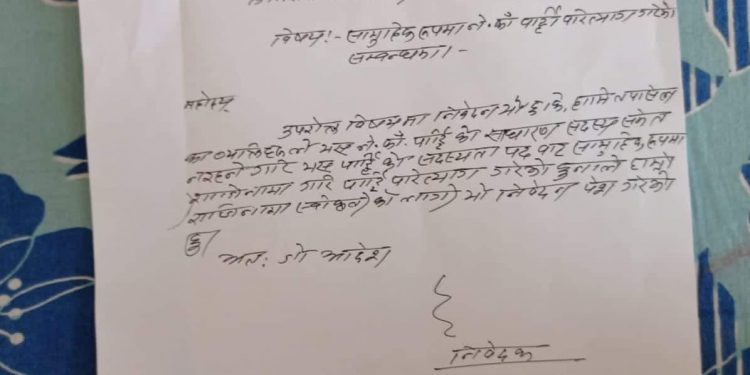 विषय:- सामुहिक रूपमा ने. काँ पार्टी परित्याग गरेको
सम्बन्धमा ।-
महोदय
उपरोक्त विषयमा निवेदन यो छ कि, हामि तपसिल
का व्यक्तिहरु ले यस ने. काँ. पार्टि को साधारण सदस्य समेत
नरहने गरि यस पार्टि को सदस्यता पद बाट सामुहिक रूपमा
राजिनामा गरि पार्टि परित्याग गरेको हुनाले हाम्रो
राजिनामा स्वीकृत को लागी यो निवेदन पेश गरेको
छु
अत: जो आदेश
निवेदक